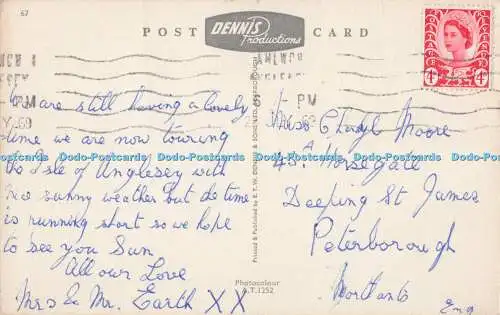 67
POST CARD
DENNIS
Productions
AMLWCH
ANGLESEY
PM
1969
We are still having a lovely
time we are now touring
the Isle of Anglesey with
nice sunny weather but de time
is running short so we hope
to see you Sun
All our Love
Mrs & Mr. Earth X X
Miss Cheryl Moore
45A Horsegate
Deeping St James
Peterborough
Northants
Eng
Printed & Published by E. T. W. DENNIS & SONS LTD., SCARBOROUGH
Photocolour
A.T.1252
Dodo-Postcards Dodo-Postcards Dodo-Postcards Dodo-Postcards Dodo-Postcards